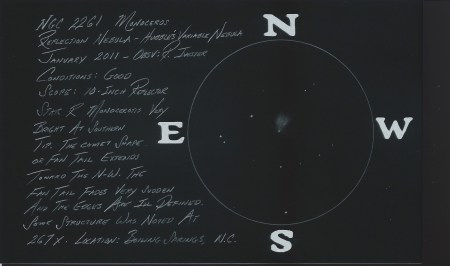 NGC 2261 Monoceros
Reflection Nebula - Hubble's Variable Nebula
January 2011 - Obsv: R.
Conditions: Good
Scope: 10-Inch Reflector
Star R Monocerotis Very
Bright At Southern
Tip. The Comet Shape
or Fan Tail Extends
Toward The N-W. The
Fan Tail Fades Very Sudden
And The Edges Are Ill Defined.
Some Structure Was Noted At
267X. Location: Boiling Springs, N.C.
N
E
W
S